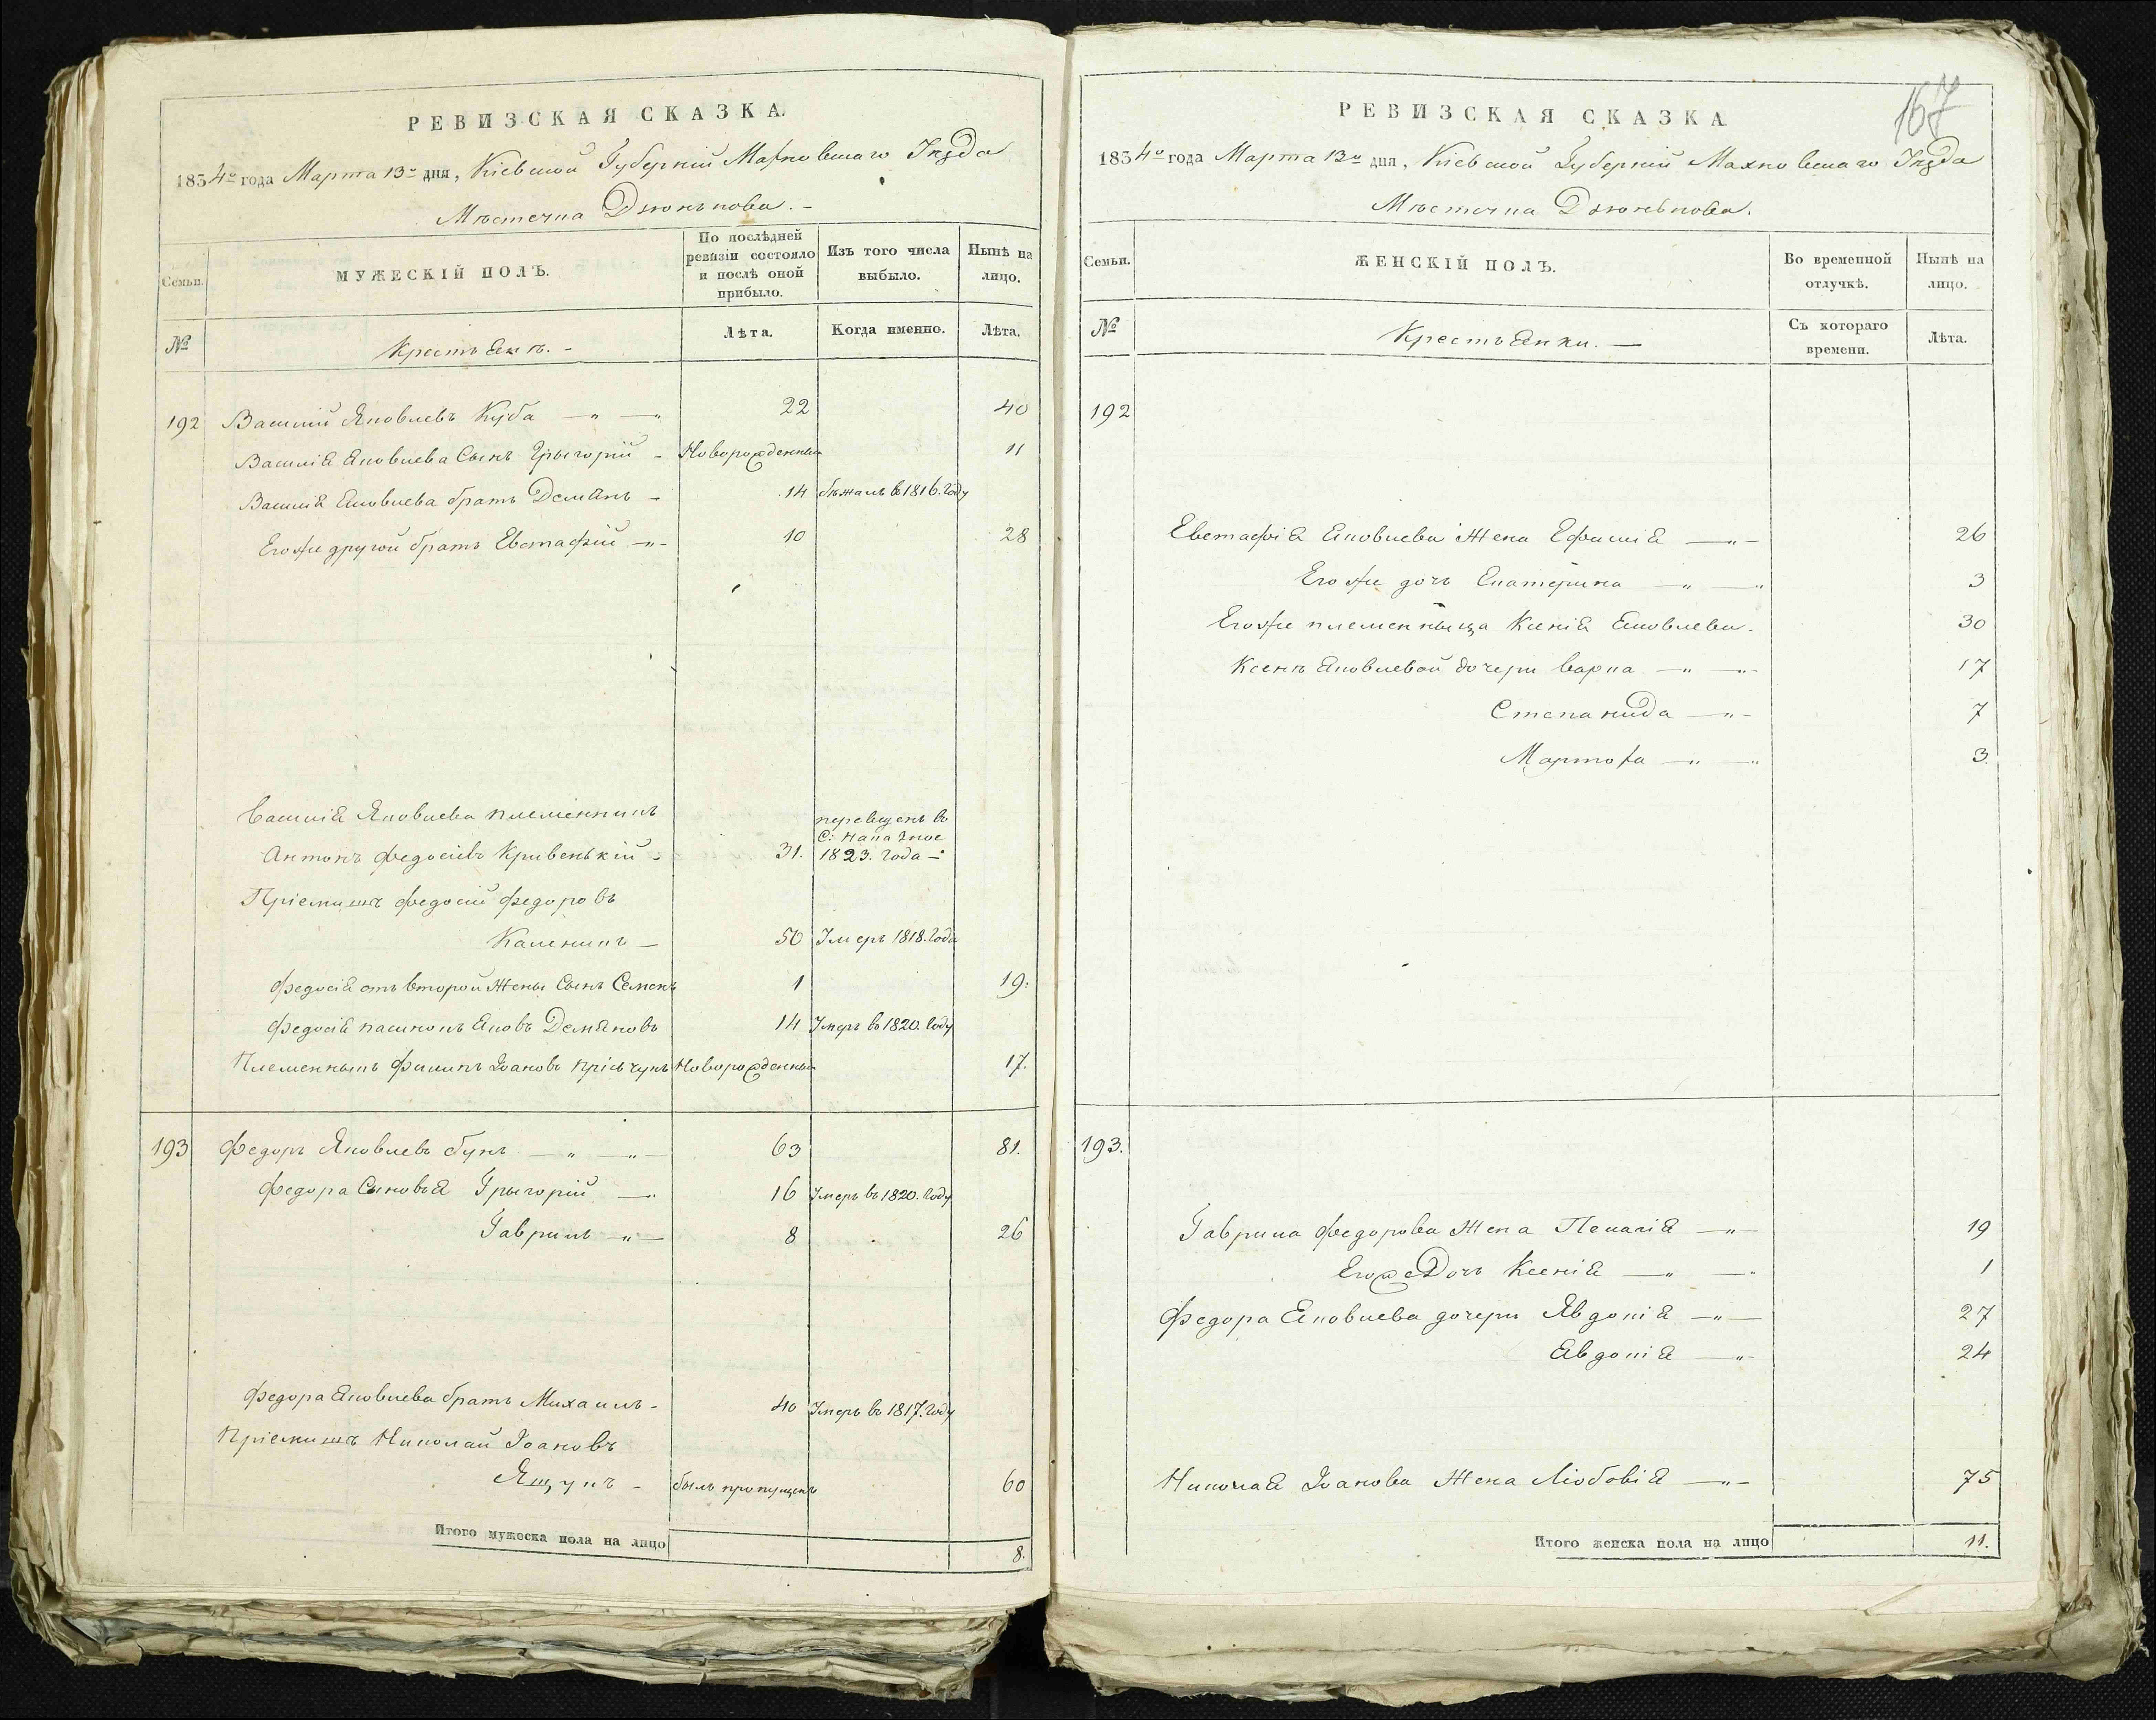 РЕВИЗСКАЯ СКАЗКА.
1834го года Марта 13го дня, Кіевской Губерніи Махновскаго Уѣзда
Мѣстечка Дзюнькова. -
Семьи.
МУЖЕСКІЙ ПОЛЪ.
По послѣдней ревизіи состояло и послѣ оной прибыло.
Изъ того числа выбыло.
Нынѣ на лицо.
№
Крестьянъ. -
Лѣта.
Когда именно.
Лѣта.
192 Василій Яковлевъ Куба 22 40
Василія Яковлева Сынъ Грыгорій - Новорожденный 11
Василія Яковлева братъ Демянъ - 14 бѣжалъ въ 1816. году
Егоже другой братъ Евстафій 10 28
Василія Яковлева племенникъ
Антонъ Федосіевъ Кривенькій - 31. переведенъ въ С: 1823. года
Пріемишъ Федосій Федоровъ
Каленикъ - 50 Умеръ 1818. года
Федосія отъ второй жены Сынъ Семенъ 1 19.
Федосія пасинокъ Яковъ Демяновъ 14 Умеръ въ 1820. году
Племенныкъ Филипъ Іоановъ Новорожденный 17.
193 Федоръ Яковлевъ букъ 63 81.
Федора Сыновья Грыгорій 16 Умеръ въ 1820. году
Гаврилъ 8 26
Федора Яковлева братъ Михаилъ - 40 Умеръ въ 1817. году
Пріемишъ Николай Іоановъ
Ящукъ - былъ пропущенъ 60
Итого мужеска пола на лицо 8.
167
РЕВИЗСКАЯ СКАЗКА
1834го года Марта 13го дня, Кіевской Губерніи Махновскаго Уѣзда
Мѣстечка Дзюнькова.
Семьи.
ЖЕНСКІЙ ПОЛЪ.
Во временной отлучкѣ.
Нынѣ на лицо.
№
Крестьянки. -
Съ котораго времени.
Лѣта.
192
Евстафія Яковлева жена Ефимія 26
Егоже дочь Екатерина 3
Егоже племенныца Ксенія Яковлева. 30
Ксенъ Яковлевой дочери Варка 17
Степанида 7
Мартоха 3.
193.
Гаврила Федорова жена Пелагія 19
Егоже Дочь Ксенія 1
Федора Яковлева дочери Явдокія 27
Явдокія 24
Николая Іоанова жена Любовія 75
Итого женска пола на лицо 11.